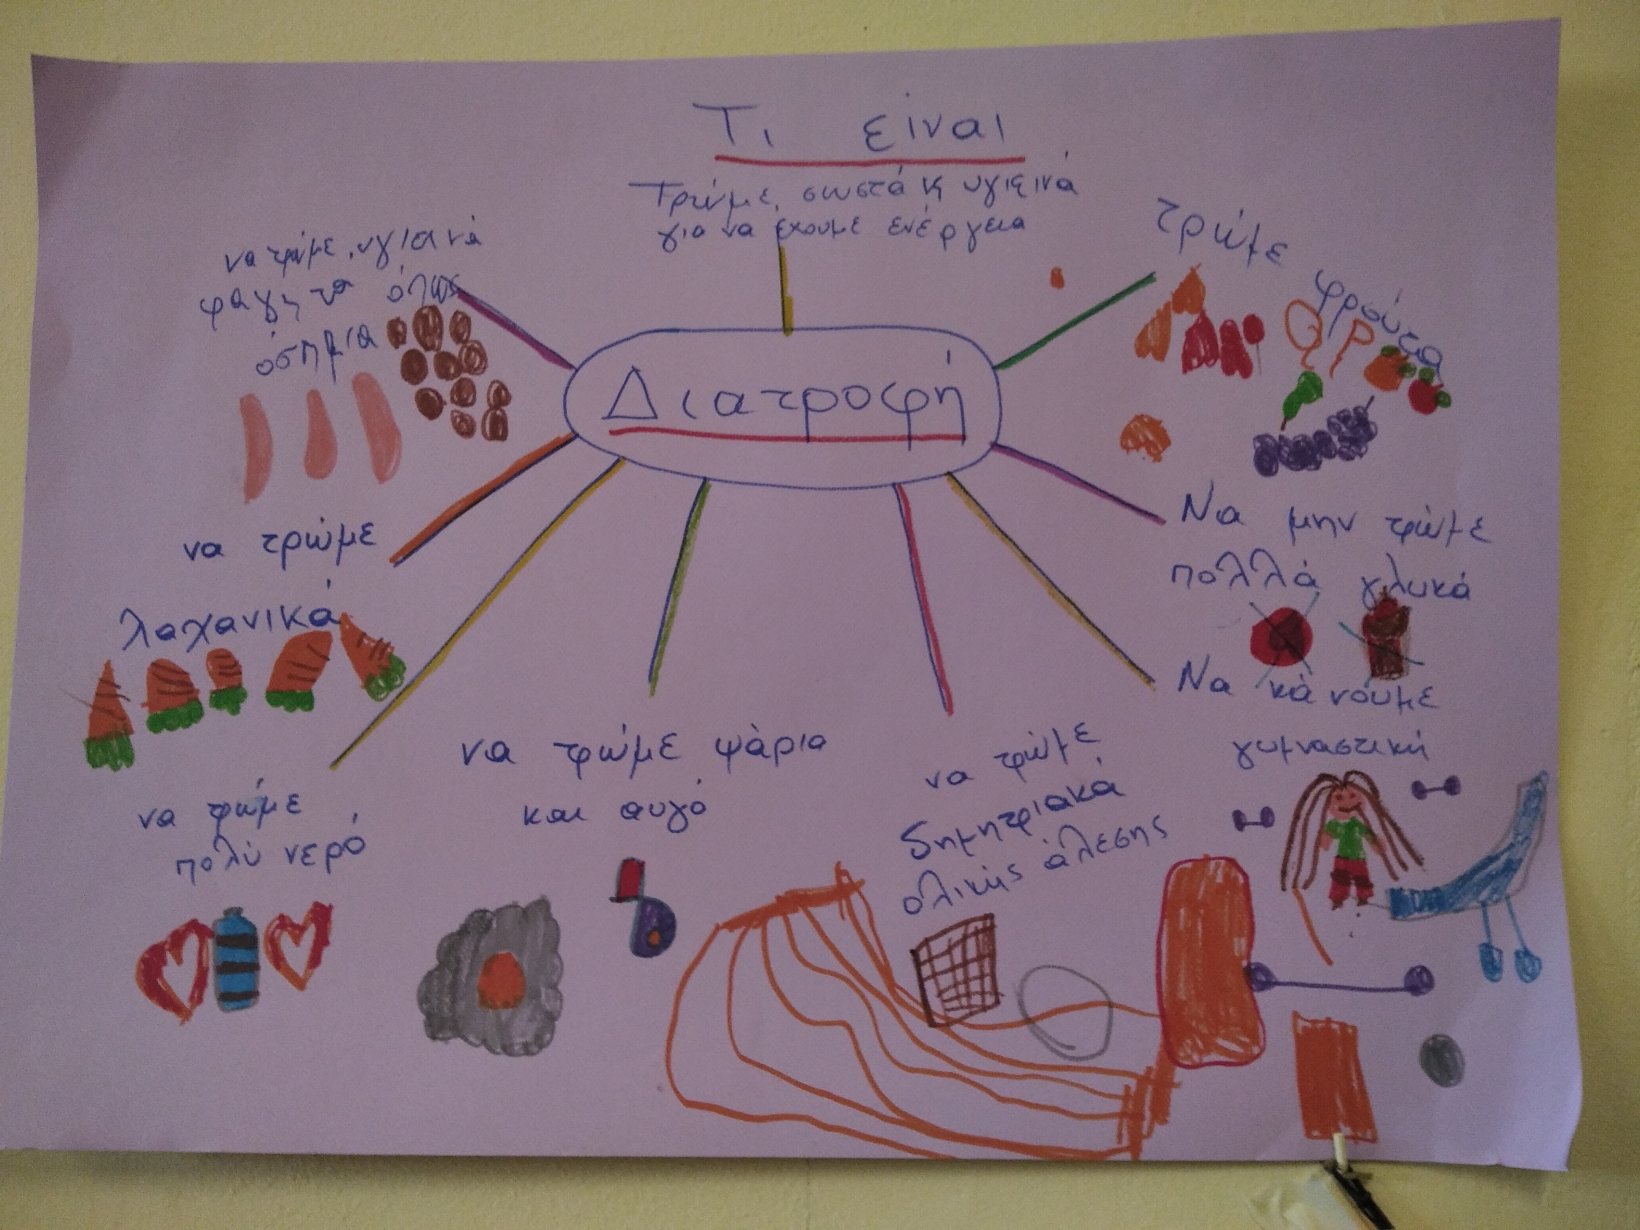 Τι είναι
Τρώμε σωστά κ υγιεινά
για να έχουμε ενέργεια
Διατροφή
να τρώμε υγιανά
φαγητα όπως
όσπρια
τρώμε
φρούτα
να τρώμε
λαχανικά
Να μην τρώμε
πολλά γλυκά
Να κάνουμε
γυμναστική
να τρώμε
δημητριακά
ολικής άλεσης
να τρώμε ψάρια
και αυγό
να πιούμε
πολύ νερό